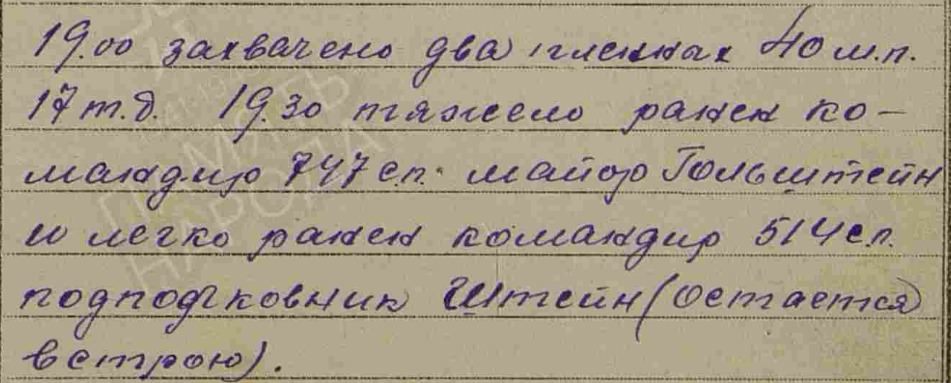 19.00 захвачено два пленных 40 м.п.
17 т.д. 19.30 тяжело ранен ко-
мандир 747 с.п. майор Гольштейн
и легко ранен командир 514 с.п.
подполковник Штейн (остается
в строю).
ПАМЯТЬ
НАРОДА